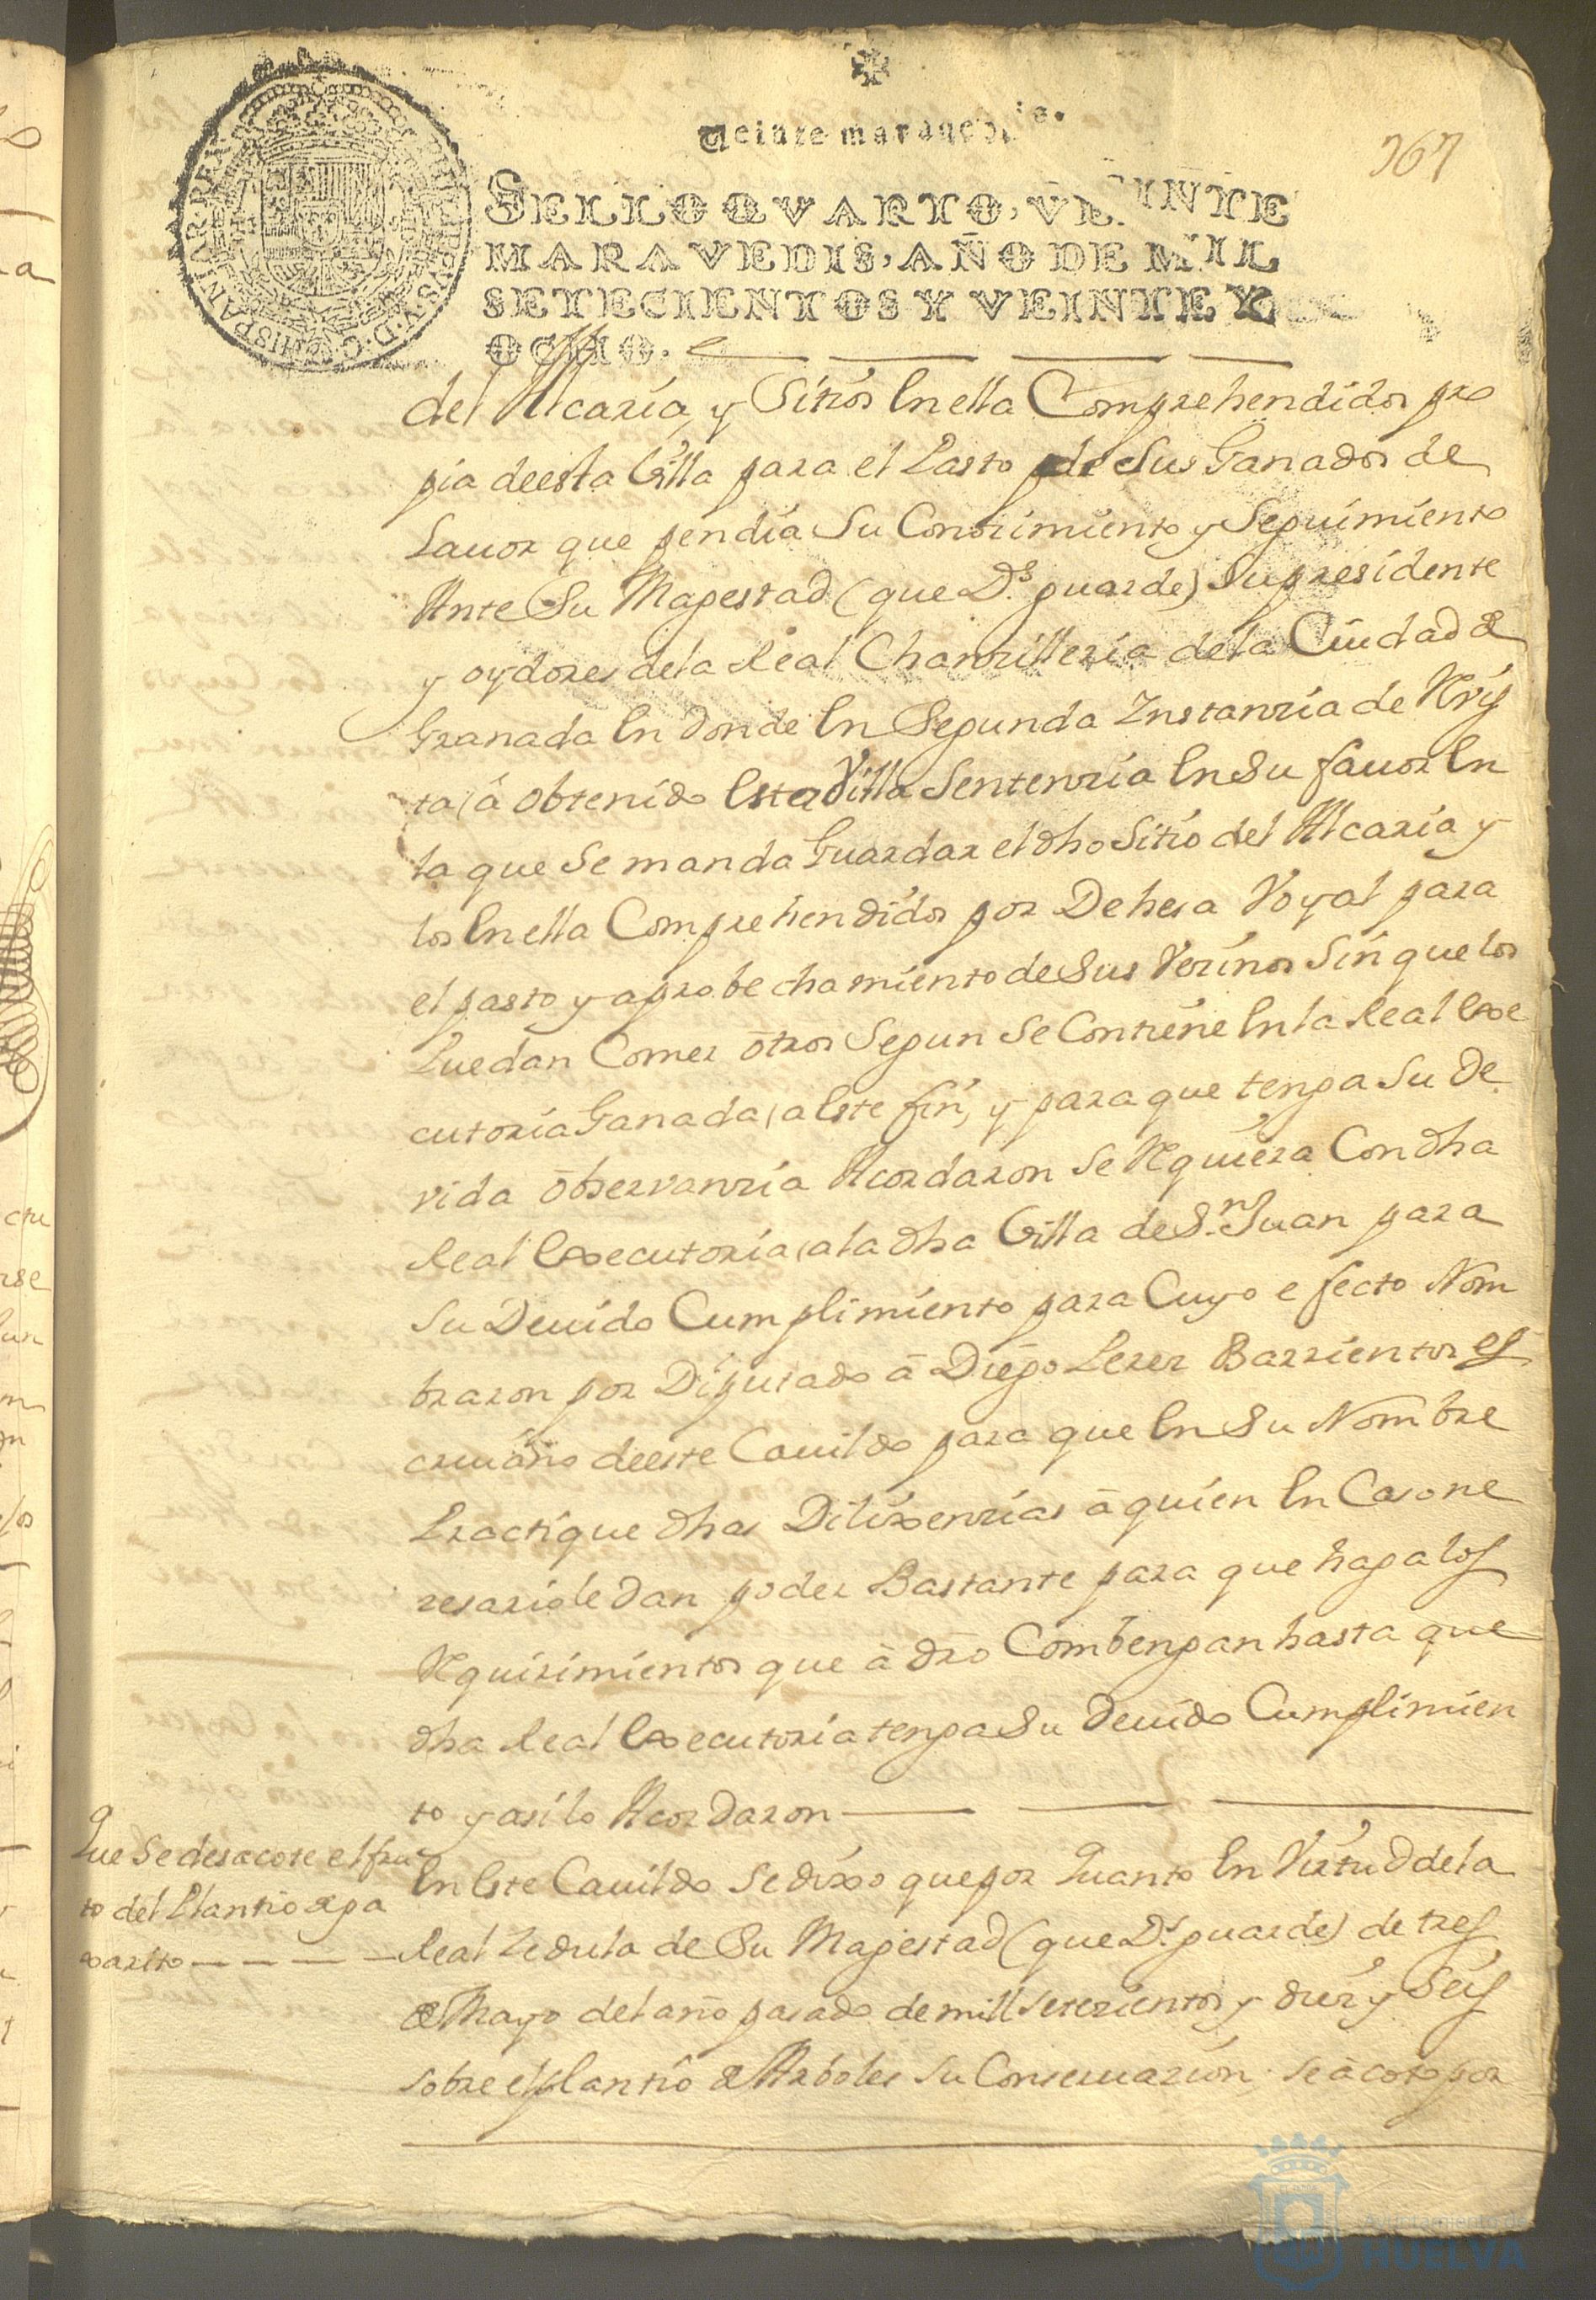 Veinte maravedis.
367
SELLO QVARTO, VEINTE
MARAVEDIS, AÑO DE MIL
SETECIENTOS Y VEINTE Y
OCHO.
HISPANIAR. REX
PHILIPPUS V. D. G.
del Alcaria, y Sitios en ella Comprehendidos pro
pia deesta Villa para el Pasto de Sus Ganados de
Lauor que pendia Su Conosimiento y Seguimiento
Ante Su Magestad (que D.s guarde) Su presidente
y oydores dela Real Chansilleria dela Ciudad de
Granada en donde en Segunda Instansia de Rvis
ta, a obtenido esta Villa Sentensia en Su fauor en
la que Se manda Guardar el dho Sitio del Alcaria y
los en ella Comprehendidos por Dehesa Voyal para
el pasto y aprobechamiento de Sus Vezinos Sin que los
Puedan Comer otros Segun Se Contiene en la Real exe
cutoria Ganada a este fin, y para que tenga Su de
vida observansia Acordaron Se Requiera Con dha
Real executoria, a la dha Villa de S.n Juan para
Su Deuido Cumplimiento para Cuyo efecto Nom
braron por Diputado â Diego Perez Barrientos es
criuano deeste Cauildo para que en Su Nombre
Practique dhas Dilixensias â quien en Caso ne
zesario le dan poder Bastante para que haga los
Requirimientos que â dro Combengan hasta que
dha Real executoria tenga Su deuido Cumplimien
to y asi lo Acordaron
Que Se desacote el fru
to del Plantio de pa
xarito
En este Cauildo Se dixo que por Quanto en Virtud dela
Real Zedula de Su Magestad (que D.s guarde) de tres
de Mayo del año pasado de mill setezientos y diez y Seis
sobre el plantio de Arboles Su Conseruazion se acoto por
Ayuntamiento de
HUELVA